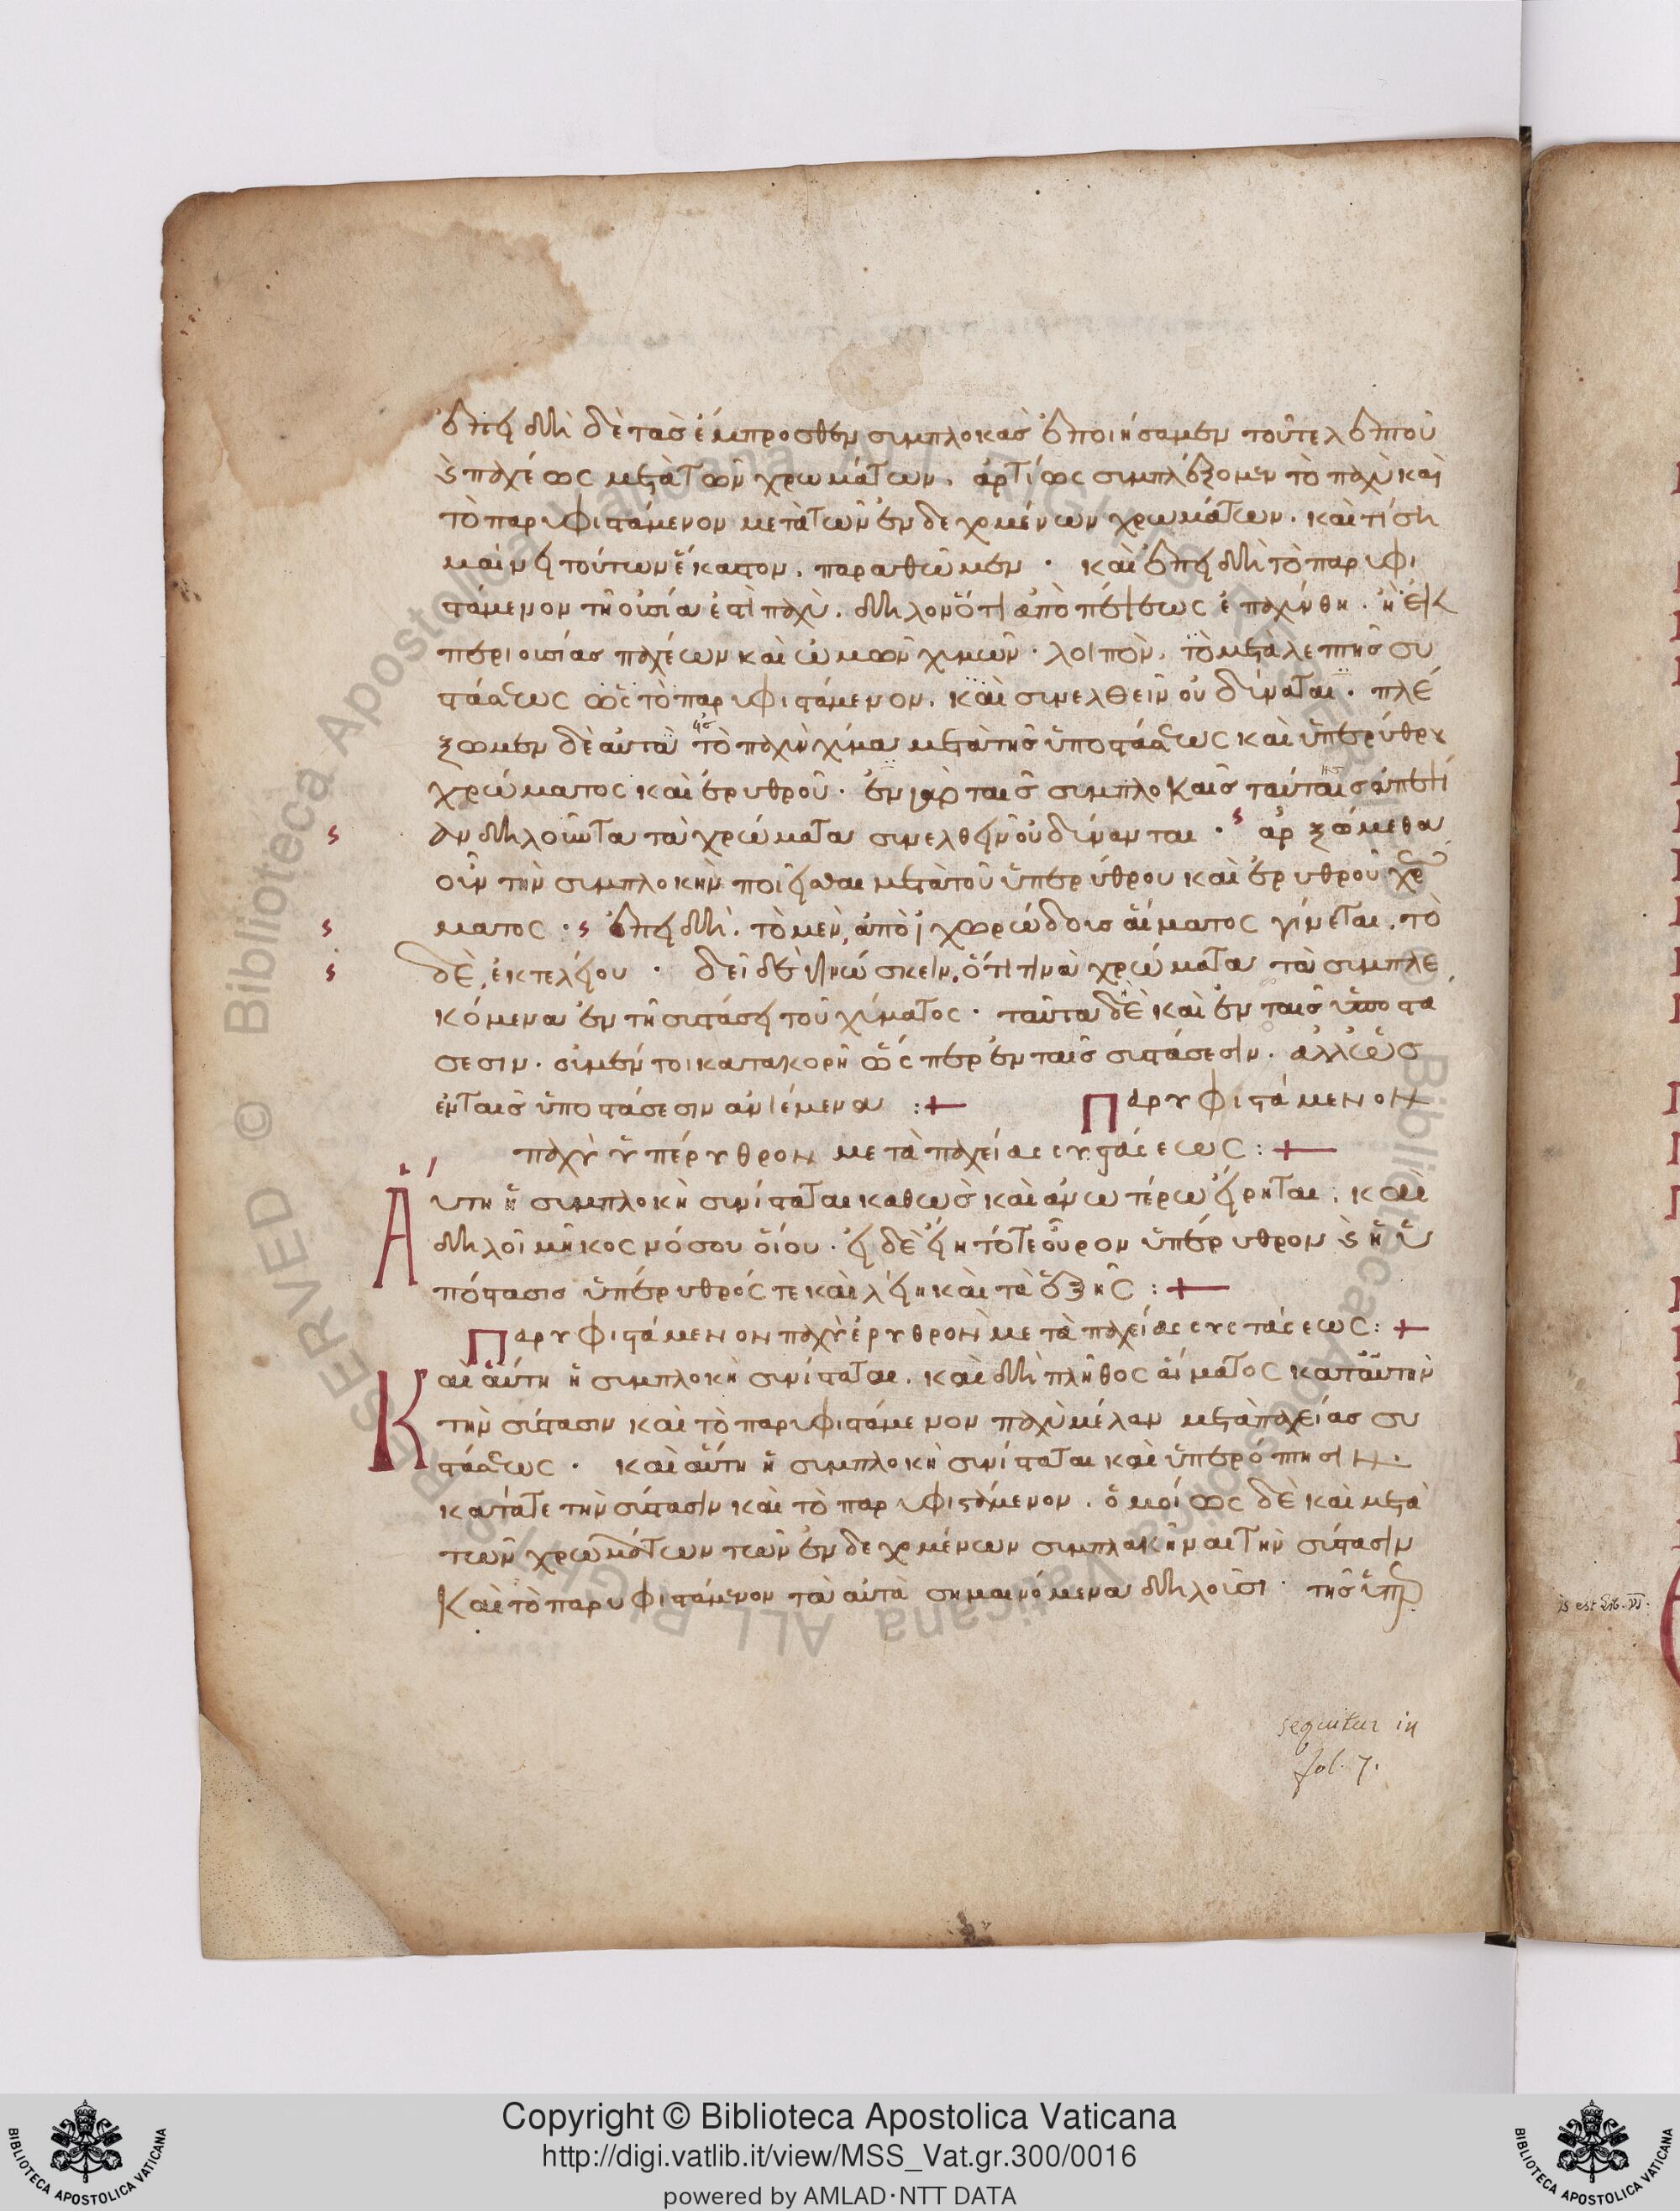 ἐπειδὴ δὲ τὰσ ἔμπροσθεν συμπλοκὰσ ἐποιήσαμεν τοῦ τελείου που
παχέως μετὰ τῶν χρωμάτων. ἀρτίως συμπλέξομεν τὸ παχὺ καὶ
τὸ παρυφιστάμενον μετὰ τῶν ἐνδεχομένων χρωμάτων. καὶ τί ση
μαίνει τούτων ἕκαστον, παραθῶμεν · καὶ ἐπειδὴ τὸ παρυφι
στάμενον τῆ οὐσία ἐστὶ παχύ. δηλονότι ἀπὸ πέψεως ἐπαχύνθη. ἢ ἐκ
περιουσίασ παχέων καὶ ὠμῶν χυμῶν · λοιπὸν, τὸ μεταλεπτῆσ συ
στάσεως ὡς τὸ παρυφιστάμενον, καὶ συνελθεῖν οὐ δύναται · πλέ
ξωμεν δὲ αὐτὰ τὸ παχὺ χύμα μετὰ τῆσ ὑποστάσεως καὶ ὑπερύθρου
χρώματος καὶ ἐρυθροῦ · ἐν γὰρ ταῖσ συμπλοκαῖσ ταύταισ ἀπεψί
αν δηλοῦντα τὰ χρώματα συνελθεῖν οὐ δύνανται · ἀρξώμεθα
οὖν τὴν συμπλοκὴν ποιεῖσθαι μετὰ τοῦ ὑπερύθρου καὶ ἐρυθροῦ χρώ
ματος · ἐπειδὴ. τὸ μὲν, ἀπὸ ἰχωρώδουσ αἵματος γίνεται. τὸ
δὲ, ἐκ τελείου · δεῖ δὲ γινώσκειν, ὅτι τινὰ χρώματα τὰ συμπλε
κόμενα ἐν τῆ συστάσει τοῦ χύματος · ταῦτα δὴ καὶ ἐν ταῖσ ὑποστά
σεσιν. οὐ μέντοι κατακορῆ ὥς περ ἐν ταῖσ συστάσεσιν. ἀλλ' ὡσ
ἐν ταῖσ ὑποστάσεσιν ἀνιέμενα :+ Παρυφιστάμενον
παχὺ ὑπέρυθρον μετὰ παχείας συστάσεως :+
Αὕτη ἡ συμπλοκὴ συνίσταται καθὼσ καὶ ἀνωτέρω εἴρηται. καὶ
δηλοῖ μῆκος νόσου οἵου · εἰ δὲ εἴη τότε οὖρον ὑπέρυθρον ἡ ὑ
πόστασισ ὑπέρυθρός τε καὶ λείη καὶ τὰ ἑξῆς :+
Παρυφιστάμενον παχὺ ἐρυθρὸν μετὰ παχείας συστάσεως :+
Καὶ αὕτη ἡ συμπλοκὴ συνίσταται. καὶ δηλοῖ πλῆθος αἵματος κατ' αὐτὴν
τὴν σύστασιν καὶ τὸ παρυφιστάμενον παχὺ μέλαν μετὰ παχείασ συ
στάσεως · καὶ αὕτη ἡ συμπλοκὴ συνίσταται καὶ ὑπερόπτησιν
κατά τε τὴν σύστασιν καὶ τὸ παρυφιστάμενον. ὁμοίως δὲ καὶ μετὰ
τῶν χρωμάτων τῶν ἐνδεχομένων συμπλακῆναι τὴν σύστασιν
καὶ τὸ παρυφιστάμενον τὰ αὐτὰ σημαινόμενα δηλοῦσι · τῆσ ὑπερ
sequitur in
fol. 7.
is est lib. VI.
Copyright © Biblioteca Apostolica Vaticana
http://digi.vatlib.it/view/MSS_Vat.gr.300/0016
powered by AMLAD·NTT DATA
BIBLIOTECA APOSTOLICA VATICANA
BIBLIOTECA APOSTOLICA VATICANA